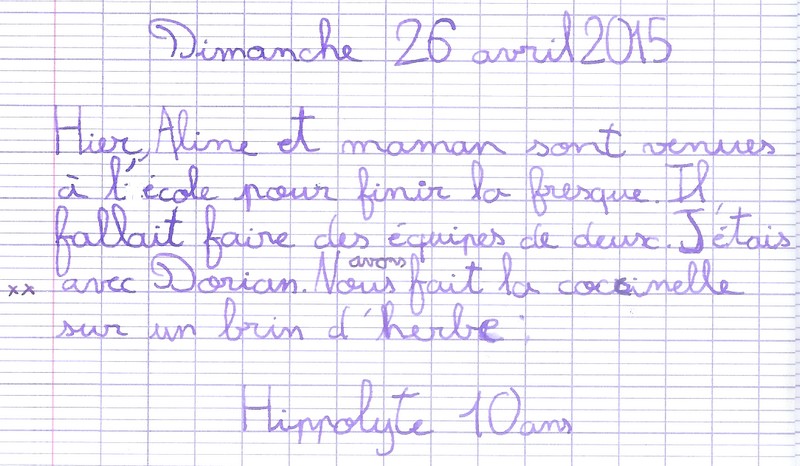 Dimanche 26 avril 2015
Hier, Aline et maman sont venues
à l'école pour finir la fresque. Il
fallait faire des équipes de deux. J'étais
xx avec Dorian. Nous avons fait la coccinelle
sur un brin d'herbe.
Hippolyte 10 ans